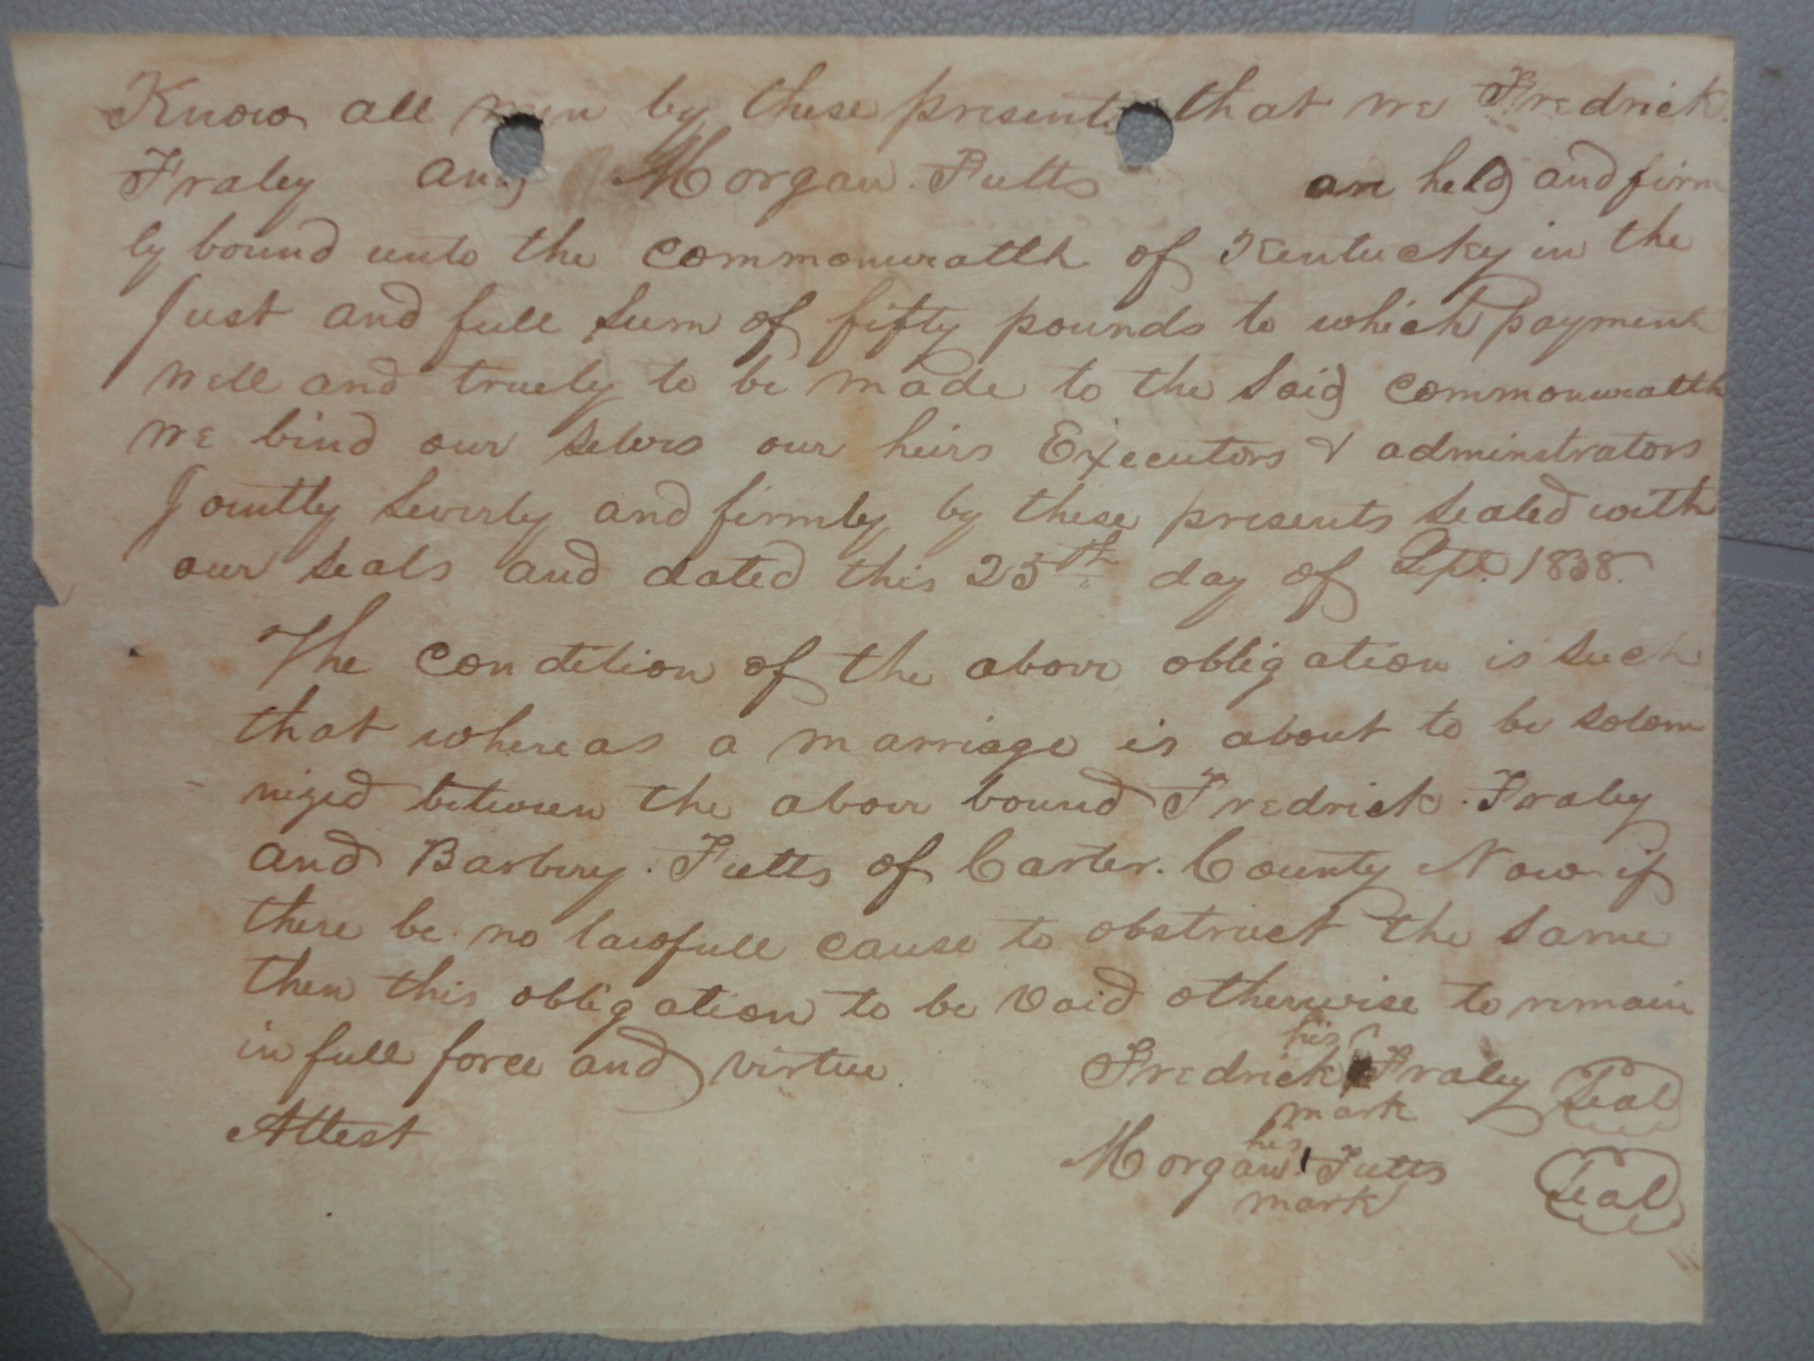 Know all men by these presents that we Fredrick
Fraley and Morgan Fults are held and firm
ly bound unto the commonwealth of Kentucky in the
Just and full sum of fifty pounds to which payment
well and truely to be made to the said commonwealth
we bind our selves our heirs Executors & adminstrators
Jointly severly and firmly by these presents sealed with
our seals and dated this 25th day of Sept. 1838.
The condition of the above obligation is such
that whereas a marriage is about to be solem
nized between the above bound Fredrick Fraley
and Barbery Fults of Carter County Now if
there be no lawfull cause to obstruct the same
then this obligation to be void otherwise to remain
in full force and virtue
his
Fredrick Fraley Seal
mark
Attest
his
Morgan Fults Seal
mark